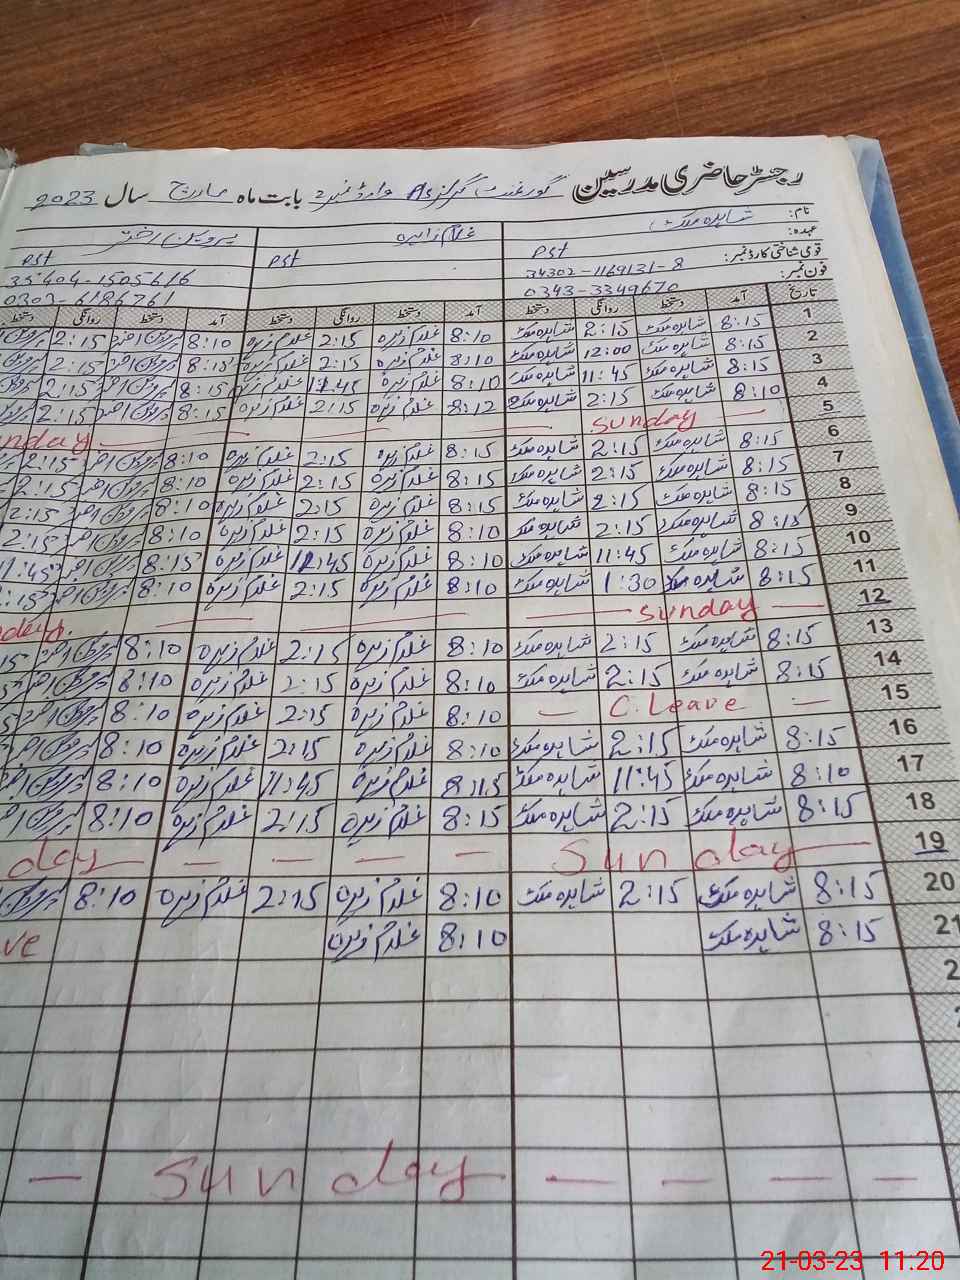 رجسٹر حاضری مدرسین گورنمنٹ گرلز Hs وارڈ نمبر 2 بابت ماہ مارچ سال 2023
نام: شاہدہ ملک غلام زاہرہ پروین اختر
عہدہ: PST PST
قومی شناختی کارڈ نمبر: 34302-1169131-8 35404-1505616
فون نمبر: 0343-3349670 0303-6186761
تاریخ آمد دستخط روانگی دستخط آمد دستخط روانگی دستخط آمد دستخط روانگی
1 8:15 شاہدہ ملک 2:15 شاہدہ ملک 8:10 غلام زہرہ 2:15 غلام زہرہ 8:10 پروین اختر 2:15
2 8:15 شاہدہ ملک 12:00 شاہدہ ملک 8:10 غلام زہرہ 2:15 غلام زہرہ 8:15 پروین اختر 2:15
3 8:15 شاہدہ ملک 11:45 شاہدہ ملک 8:10 غلام زہرہ 11:45 غلام زہرہ 8:15 پروین اختر 2:15
4 8:10 شاہدہ ملک 2:15 شاہدہ ملک 8:12 غلام زہرہ 2:15 غلام زہرہ 8:15 پروین اختر 2:15
5 — Sunday — — — — nday
6 8:15 شاہدہ ملک 2:15 شاہدہ ملک 8:15 غلام زہرہ 2:15 غلام زہرہ 8:10 پروین اختر 2:15
7 8:15 شاہدہ ملک 2:15 شاہدہ ملک 8:15 غلام زہرہ 2:15 غلام زہرہ 8:10 پروین اختر 2:15
8 8:15 شاہدہ ملک 2:15 شاہدہ ملک 8:15 غلام زہرہ 2:15 غلام زہرہ 8:10 پروین اختر 2:15
9 8:15 شاہدہ ملک 2:15 شاہدہ ملک 8:10 غلام زہرہ 2:15 غلام زہرہ 8:10 پروین اختر 2:15
10 8:15 شاہدہ ملک 11:45 شاہدہ ملک 8:10 غلام زہرہ 11:45 غلام زہرہ 8:15 پروین اختر 11:45
11 8:15 شاہدہ ملک 1:30 شاہدہ ملک 8:10 غلام زہرہ 2:15 غلام زہرہ 8:10 پروین اختر 2:15
12 — Sunday — — — nday
13 8:15 شاہدہ ملک 2:15 شاہدہ ملک 8:10 غلام زہرہ 2:15 غلام زہرہ 8:10 پروین اختر 15
14 8:15 شاہدہ ملک 2:15 شاہدہ ملک 8:10 غلام زہرہ 2:15 غلام زہرہ 8:10 پروین اختر
15 — C. Leave — 8:10 غلام زہرہ 2:15 غلام زہرہ 8:10 پروین اختر
16 8:15 شاہدہ ملک 2:15 شاہدہ ملک 8:10 غلام زہرہ 2:15 غلام زہرہ 8:10 پروین اختر
17 8:10 شاہدہ ملک 11:45 شاہدہ ملک 8:15 غلام زہرہ 11:45 غلام زہرہ 8:10 پروین اختر
18 8:15 شاہدہ ملک 2:15 شاہدہ ملک 8:15 غلام زہرہ 2:15 غلام زہرہ 8:10 پروین
19 — Sunday — — — — day
20 8:15 شاہدہ ملک 2:15 شاہدہ ملک 8:10 غلام زہرہ 2:15 غلام زہرہ 8:10 پروین
21 8:15 شاہدہ ملک 8:10 غلام زہرہ ve
2
2
— Sunday — — — —
21-03-23 11:20